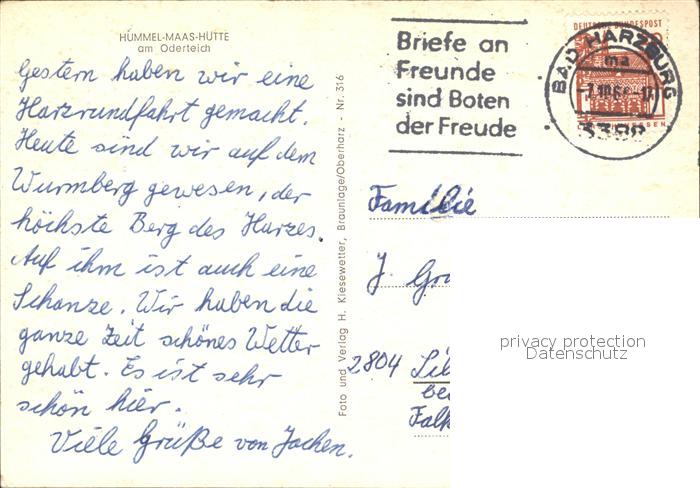 HUMMEL-MAAS-HÜTTE
am Oderteich
Gestern haben wir eine
Harzrundfahrt gemacht.
Heute sind wir auf dem
Wurmberg gewesen, der
höchste Berg des Harzes.
Auf ihm ist auch eine
Schanze. Wir haben die
ganze Zeit schönes Wetter
gehabt. Es ist sehr
schön hier.
Viele Grüße von Jochen.
Foto und Verlag H. Kiesewetter, Braunlage/Oberharz - Nr. 316
Briefe an
Freunde
sind Boten
der Freude
DEUTSCHE BUNDESPOST
BAD HARZBURG
ma
3388
Familie
J. Gra
2804 Lil
be
Falk
privacy protection
Datenschutz